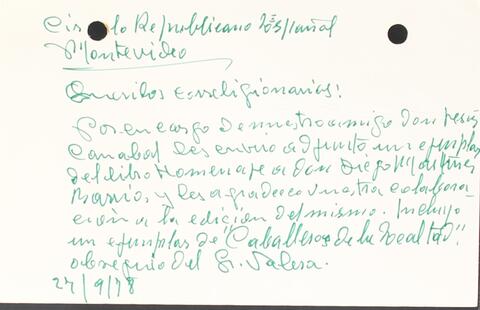 Círculo Republicano Español
Montevideo
Queridos correligionarios:
Por encargo de nuestro amigo Don Jesús
Canabal les envío adjunto un ejemplar
del libro Homenaje a Don Diego Martínez
Barrios, y les agradezco vuestra colabora-
ción a la edición del mismo. Incluyo
un ejemplar de "Caballeros de la Lealtad",
obsequio del Sr. Valera.
27/9/78